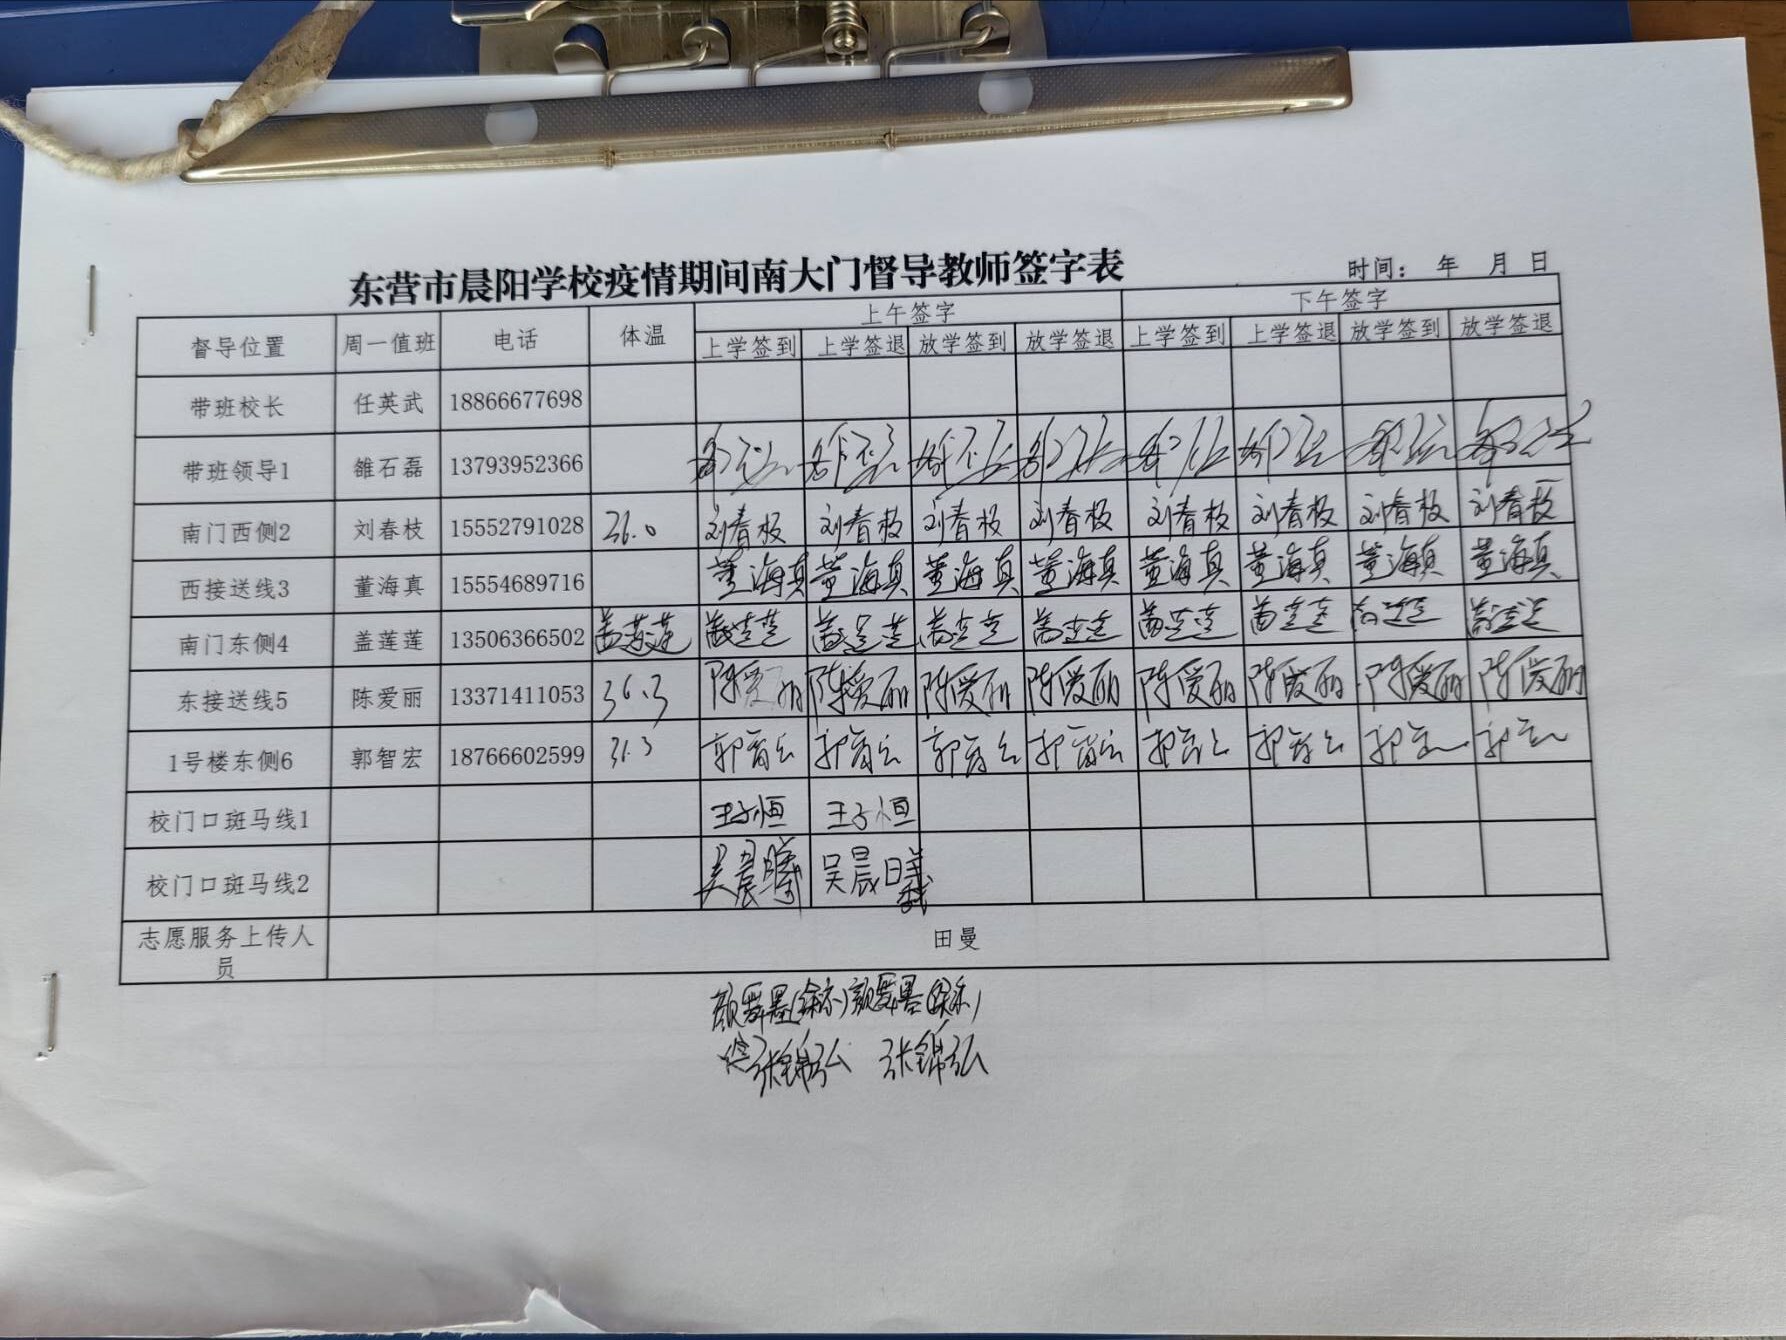 东营市晨阳学校疫情期间南大门督导教师签字表
时间： 年 月 日
督导位置 周一值班 电话 体温 上午签字 下午签字
上学签到 上学签退 放学签到 放学签退 上学签到 上学签退 放学签到 放学签退
带班校长 任英武 18866677698
带班领导1 雒石磊 13793952366
南门西侧2 刘春枝 15552791028 36.0 刘春枝 刘春枝 刘春枝 刘春枝 刘春枝 刘春枝 刘春枝 刘春枝
西接送线3 董海真 15554689716 董海真 董海真 董海真 董海真 董海真 董海真 董海真 董海真
南门东侧4 盖莲莲 13506366502 盖莲莲 盖莲莲 盖莲莲 盖莲莲 盖莲莲 盖莲莲 盖莲莲 盖莲莲 盖莲莲
东接送线5 陈爱丽 13371411053 36.3 陈爱丽 陈爱丽 陈爱丽 陈爱丽 陈爱丽 陈爱丽 陈爱丽 陈爱丽
1号楼东侧6 郭智宏 18766602599 31.3 郭智宏 郭智宏 郭智宏 郭智宏 郭智宏 郭智宏 郭智宏 郭智宏
校门口斑马线1 王子恒 王子恒
校门口斑马线2 吴晨曦 吴晨曦
志愿服务上传人员 田曼
张锦弘 张锦弘